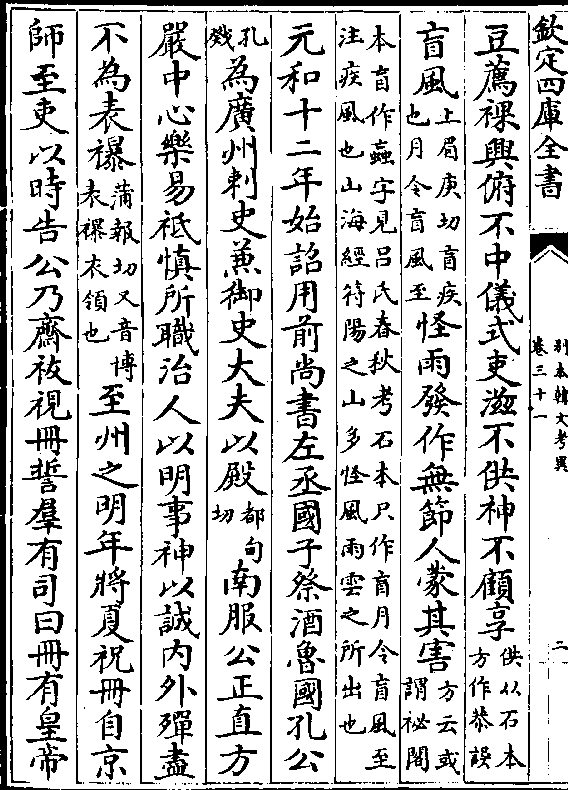 欽定四庫全書
別本韓文考異
卷三十一
二
豆薦祼興俯不中儀式吏滋不供神不顧享供从石本方作恭誤
盲風上眉庚切盲疾也月令盲風至怪雨發作無節人蒙其害方云或謂祕閣
本盲作蝱字見呂氏春秋考石本只作盲月令盲風至
注疾風也山海經符陽之山多怪風雨雲之所出也
元和十二年始詔用前尚書左丞國子祭酒魯國孔公
孔戣為廣州刺史兼御史大夫以殿都甸切南服公正直方
嚴中心樂易祗慎所職治人以明事神以誠內外殫盡
不為表襮蒲報切又音博表襮衣領也至州之明年將夏祝冊自京
師至吏以時告公乃齋祓視冊誓羣有司曰冊有皇帝